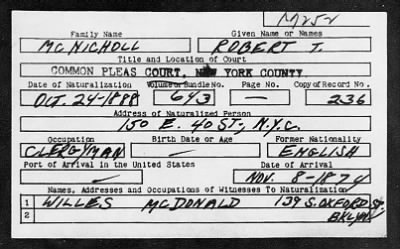 M252
Family Name Given Name or Names
McNICHOLL ROBERT T.
Title and Location of Court
COMMON PLEAS COURT, NEW YORK COUNTY
Date of Naturalization Volume or Bundle No. Page No. Copy of Record No.
OCT. 24-1888 643 — 236
Address of Naturalized Person
150 E. 40 ST., N.Y.C.
Occupation Birth Date or Age Former Nationality
CLERGYMAN — ENGLISH
Port of Arrival in the United States Date of Arrival
— NOV. 8-1874
Names, Addresses and Occupations of Witnesses To Naturalization
1 WILLES McDONALD 139 S. OXFORD ST.,
2 BKLYN